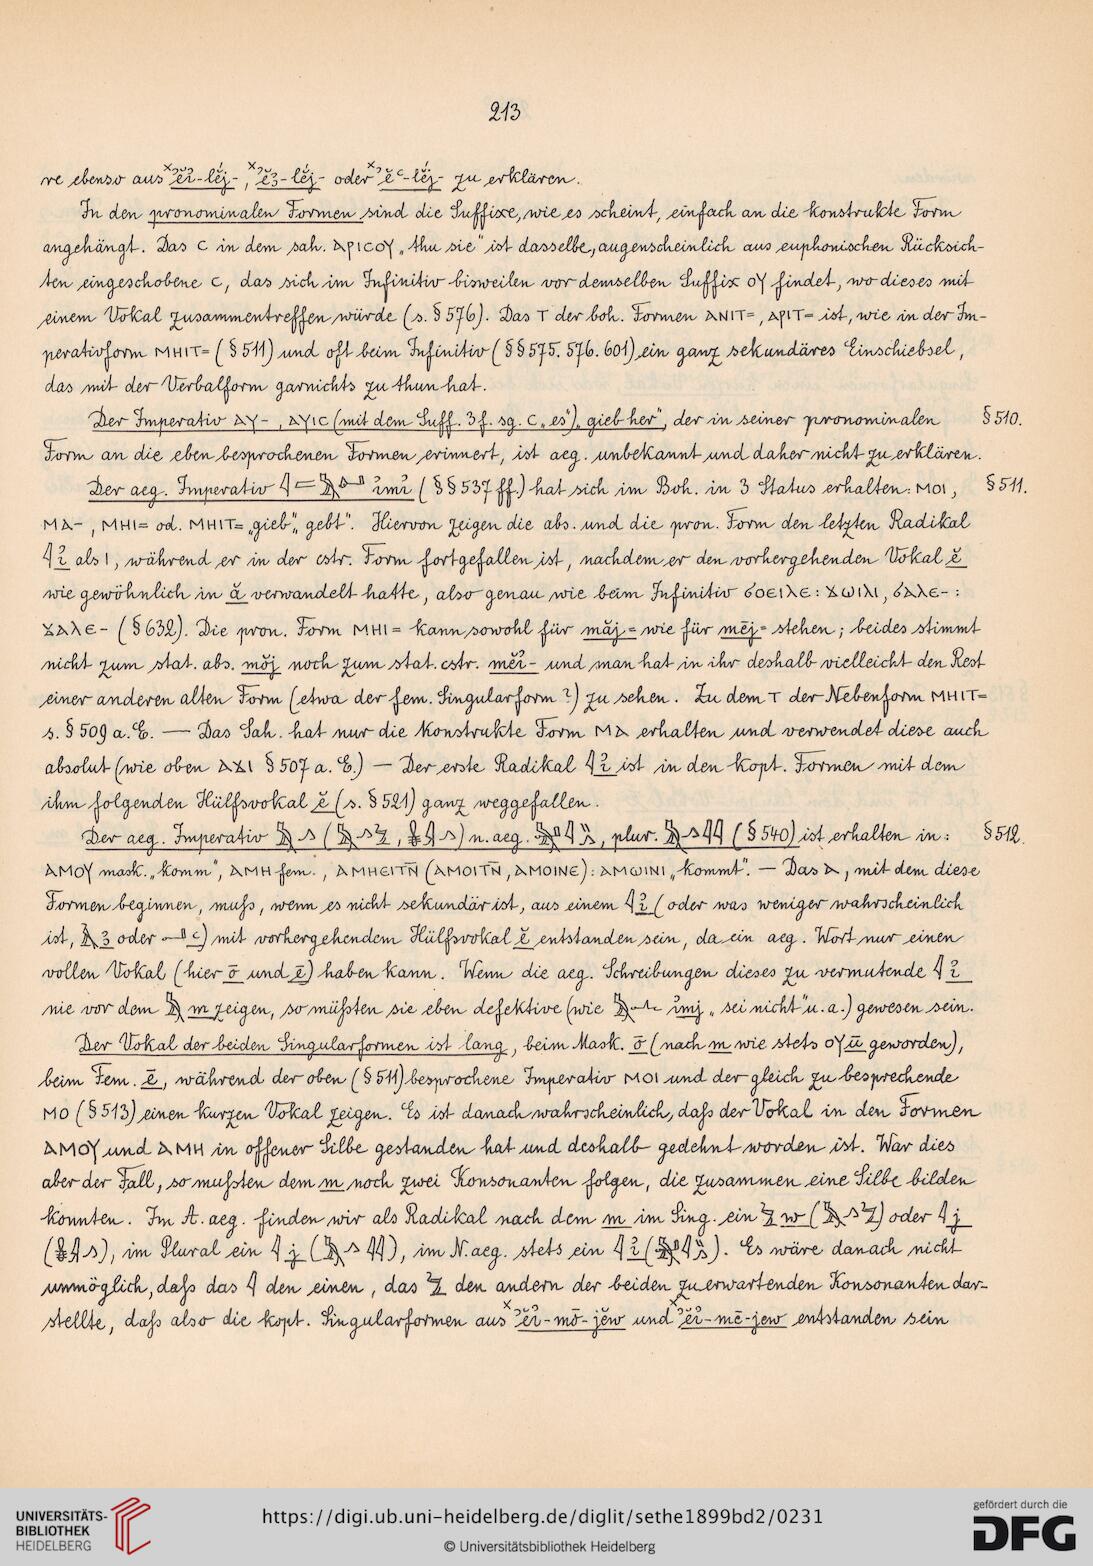 213
re ebenso aus ˣʾĕỉ-lĕj-, ˣʾĕꜣ-lĕj- oder ˣʾĕꜥ-lĕj- zu erklären.
In den pronominalen Formen sind die Suffixe, wie es scheint, einfach an die konstrukte Form
angehängt. Das ⲥ in dem sah. ⲁⲣⲓⲥⲟⲩ „thu sie“ ist dasselbe, augenscheinlich aus euphonischen Rücksich-
ten eingeschobene ⲥ, das sich im Infinitiv bisweilen vor demselben Suffix ⲟⲩ findet, wo dieses mit
einem Vokal zusammentreffen würde (s. § 576). Das ⲧ der boh. Formen ⲁⲛⲓⲧ=, ⲁⲣⲓⲧ= ist, wie in der Im-
perativform ⲙⲏⲓⲧ= (§ 511) und oft beim Infinitiv (§§ 575. 576. 601) ein ganz sekundäres Einschiebsel,
das mit der Verbalform garnichts zu thun hat.
Der Imperativ ⲁⲩ-, ⲁⲩⲓⲥ (mit dem Suff. 3 f. sg. ⲥ „es“) „gieb her“, der in seiner pronominalen § 510.
Form an die eben besprochenen Formen erinnert, ist aeg. unbekannt und daher nicht zu erklären.
Der aeg. Imperativ ỉmỉ (§§ 537 ff.) hat sich im Boh. in 3 Status erhalten: ⲙⲟⲓ, § 511.
ⲙⲁ-, ⲙⲏⲓ= od. ⲙⲏⲓⲧ= „gieb“ „gebt“. Hiervon zeigen die abs. und die pron. Form den letzten Radikal
𓇋 ỉ als ⲓ, während er in der cstr. Form fortgefallen ist, nachdem er den vorhergehenden Vokal ĕ
wie gewöhnlich in ă verwandelt hatte, also genau wie beim Infinitiv ϭⲟⲉⲓⲗⲉ: ϫⲱⲓⲗⲓ, ϭⲁⲗⲉ-:
ϫⲁⲗⲉ- (§ 632). Die pron. Form ⲙⲏⲓ= kann sowohl für măj= wie für mēj= stehen; beides stimmt
nicht zum stat. abs. mŏj noch zum stat. cstr. mĕỉ- und man hat in ihr deshalb vielleicht den Rest
einer anderen alten Form (etwa der fem. Singularform?) zu sehen. Zu dem ⲧ der Nebenform ⲙⲏⲓⲧ=
s. § 509 a. E. — Das Sah. hat nur die konstrukte Form ⲙⲁ erhalten und verwendet diese auch
absolut (wie oben ⲁϫⲓ § 507 a. E.) — Der erste Radikal 𓇋 ỉ ist in den kopt. Formen mit dem
ihm folgenden Hülfsvokal ĕ (s. § 521) ganz weggefallen.
Der aeg. Imperativ 𓅓𓂻 n. aeg. , plur. 𓅓𓂻𓇋𓇋 (§ 540) ist erhalten in: § 512.
ⲁⲙⲟⲩ mask. „komm“, ⲁⲙⲏ fem., ⲁⲙⲏⲉⲓⲧⲛ̄ (ⲁⲙⲟⲓⲧⲛ̄, ⲁⲙⲟⲓⲛⲉ): ⲁⲙⲱⲓⲛⲓ „kommt“. — Das ⲁ, mit dem diese
Formen beginnen, muſs, wenn es nicht sekundär ist, aus einem 𓇋 ỉ (oder was weniger wahrscheinlich
ist, 𓄿 ꜣ oder 𓂝 ꜥ) mit vorhergehendem Hülfsvokal ĕ entstanden sein, da ein aeg. Wort nur einen
vollen Vokal (hier ō und ē) haben kann. Wenn die aeg. Schreibungen dieses zu vermutende 𓇋 ỉ
nie vor dem 𓅓 m zeigen, so müſsten sie eben defektive (wie 𓅓𓂜 ỉmj „sei nicht“ u. a.) gewesen sein.
Der Vokal der beiden Singularformen ist lang, beim Mask. ō (nach m wie stets ⲟⲩ ū geworden),
beim Fem. ē, während der oben (§ 511) besprochene Imperativ ⲙⲟⲓ und der gleich zu besprechende
ⲙⲟ (§ 513) einen kurzen Vokal zeigen. Es ist danach wahrscheinlich, daſs der Vokal in den Formen
ⲁⲙⲟⲩ und ⲁⲙⲏ in offener Silbe gestanden hat und deshalb gedehnt worden ist. War dies
aber der Fall, so muſsten dem m noch zwei Konsonanten folgen, die zusammen eine Silbe bilden
konnten. Im A. aeg. finden wir als Radikal nach dem m im Sing. ein 𓅱 w (𓅓𓂻𓅱) oder 𓇋 j
, im Plural ein 𓇋 j (𓅓𓂻𓇋𓇋), im N. aeg. stets ein 𓇋 ỉ . Es wäre danach nicht
unmöglich, daſs das 𓇋 den einen, das 𓅱 den andern der beiden zu erwartenden Konsonanten dar-
stellte, daſs also die kopt. Singularformen aus ˣʾĕỉ-mō-jĕw und ˣʾĕỉ-mē-jew entstanden sein
UNIVERSITÄTS-
BIBLIOTHEK
HEIDELBERG
https://digi.ub.uni-heidelberg.de/diglit/sethe1899bd2/0231
© Universitätsbibliothek Heidelberg
gefördert durch die
DFG